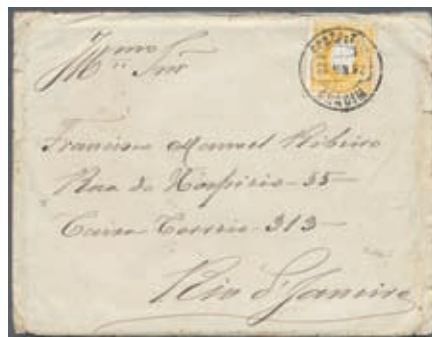 Illmo Snr
Francisco Manoel Ribeiro
Rua do Hospicio - 55
Caixa Correio - 313 -
Rio d'Janeiro